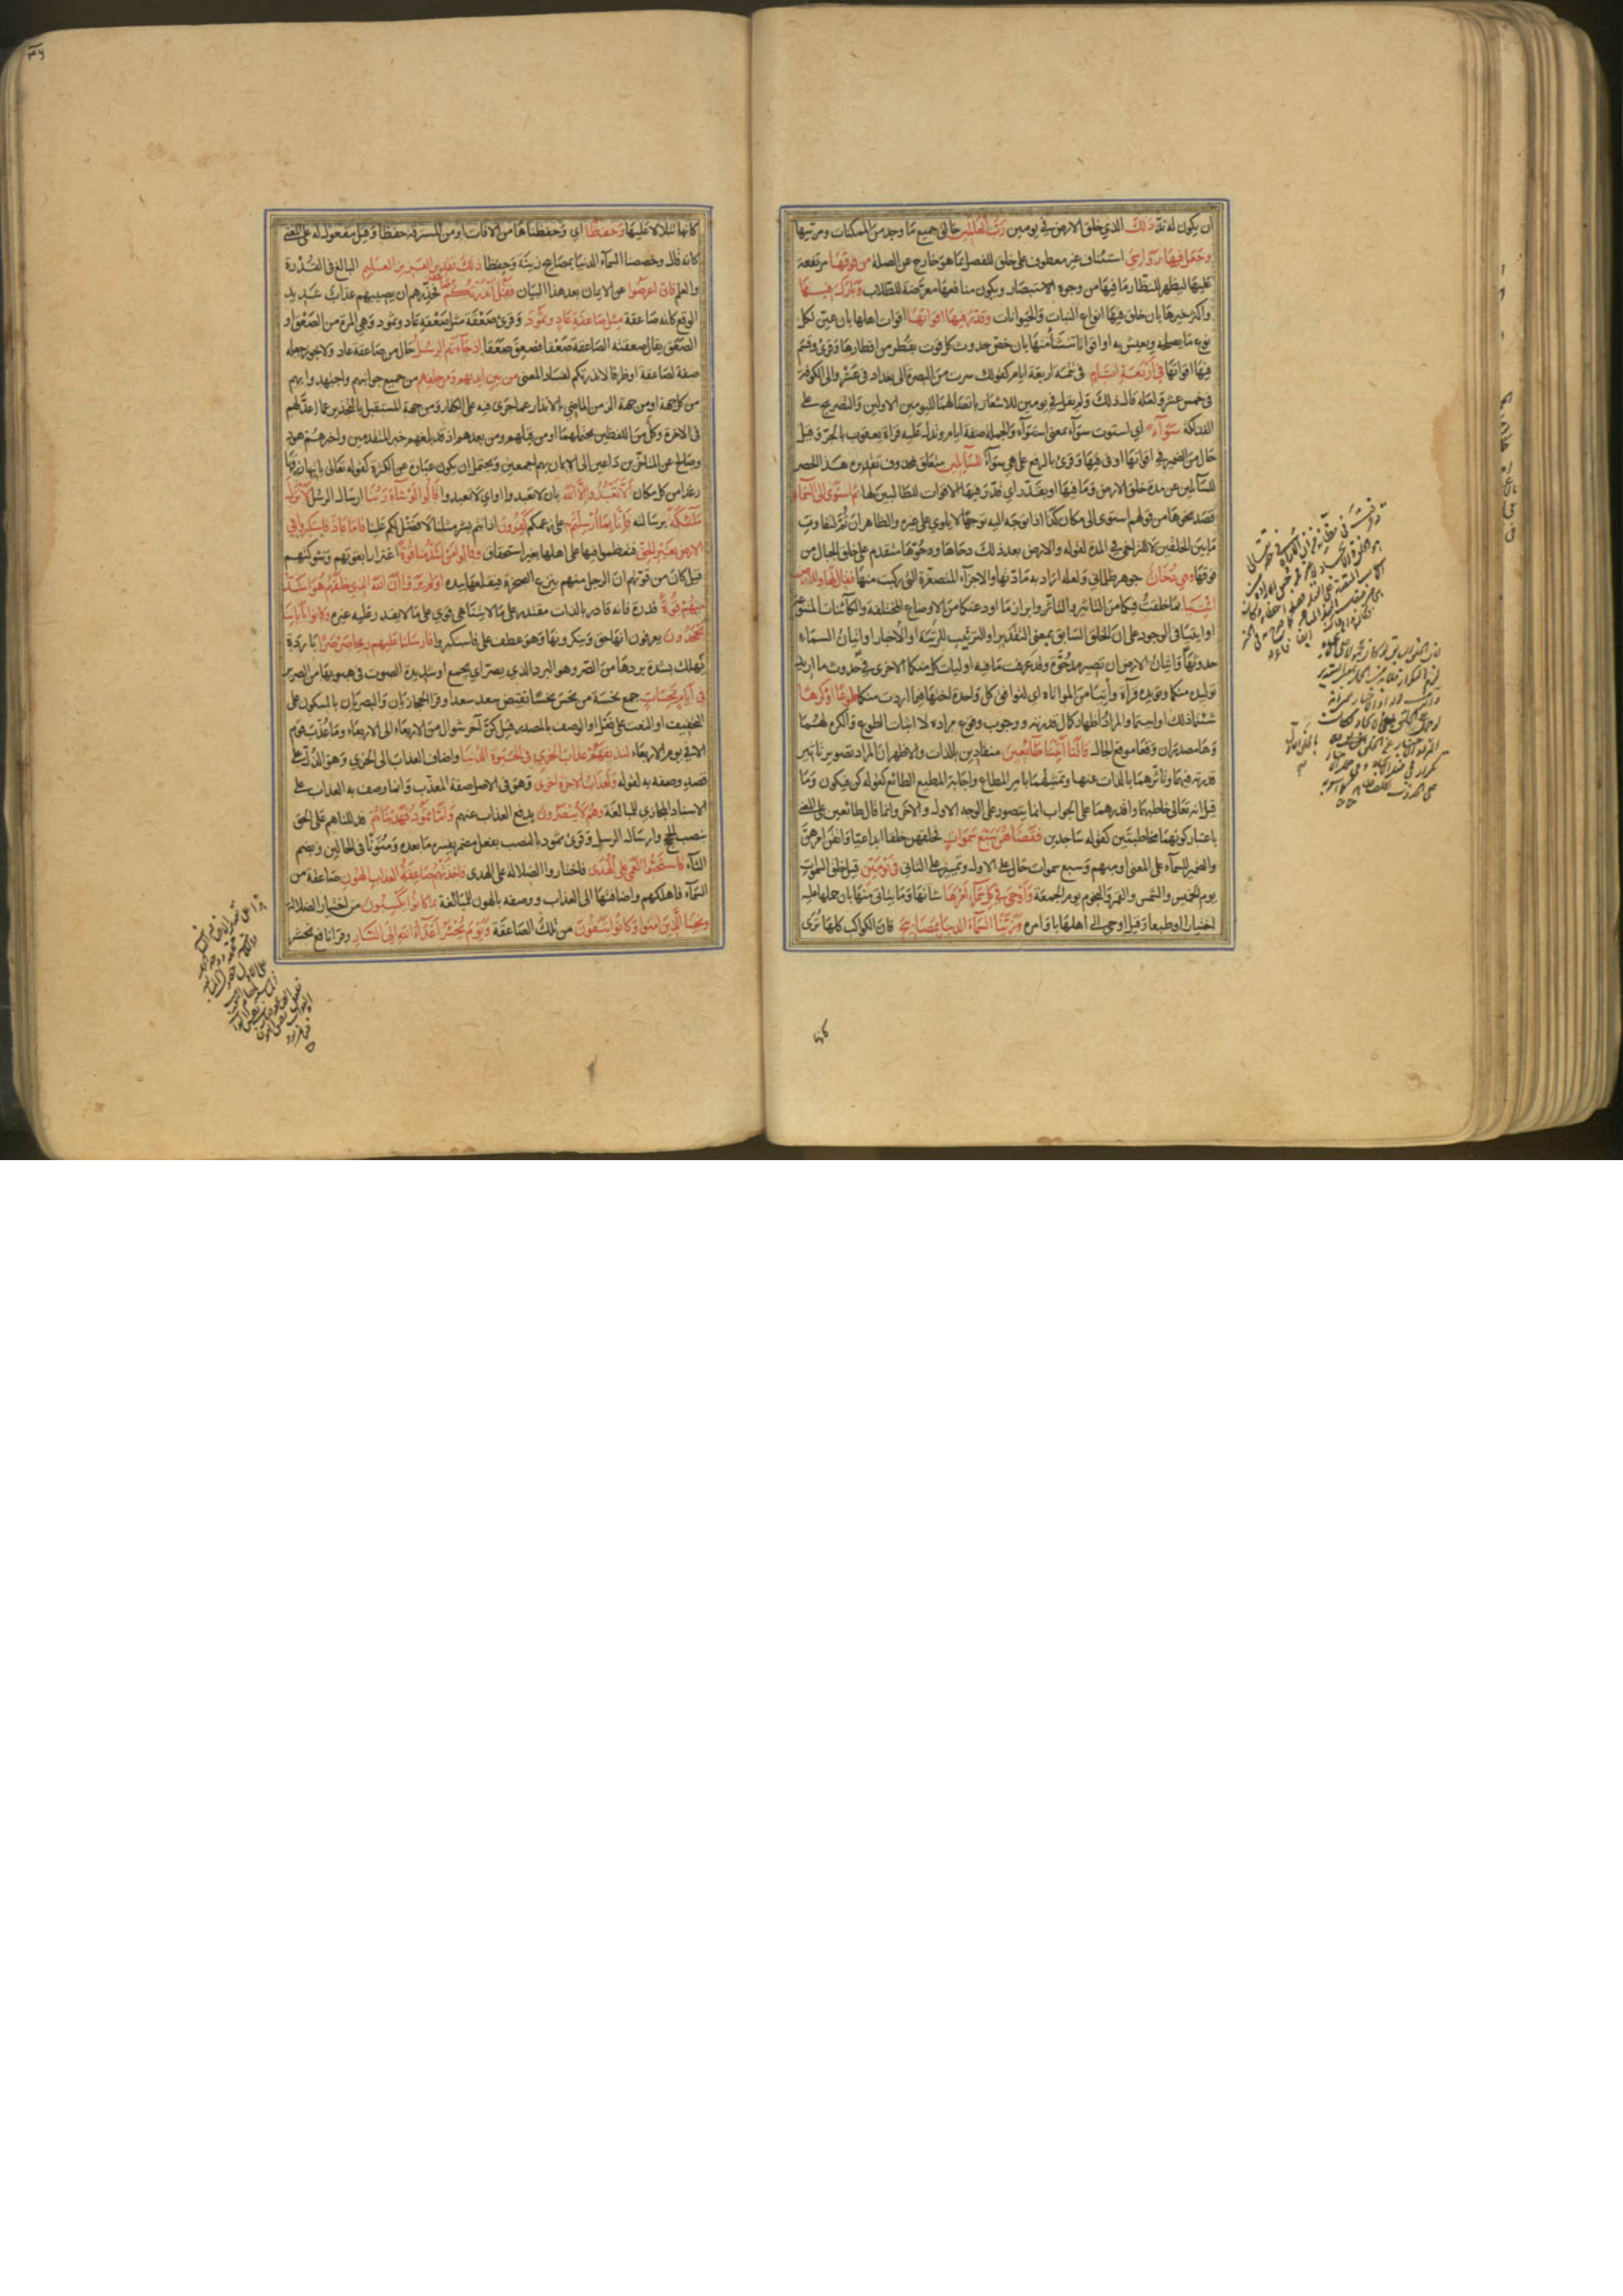 ان يكون له ندّ ذلك الذي خلق الارض في يومين رب العالمين خالق جميع ما وجد من الممكنات ومربيها
وجعل فيها رواسي استئناف غير معطوف على خلق للفصل بما هو خارج عن الصلة من فوقها مرتفعة
عليها ليظهر للنظار ما فيها من وجوه الاستبصار ويكون منافعها معرضة للطلاب وبارك فيها
واكثر خيرها بان خلق فيها انواع النبات والحيوانات وقدر فيها اقواتها اقوات اهلها بان عين لكل
نوع ما يصلحه ويعيش به او اقواتا تنشأ منها بان خص حدوث كل قوت بقطر من اقطارها وقرئ وقسم
فيها اقواتها في اربعة ايام في تتمة اربعة ايام كقولك سرت من البصرة الى بغداد في عشر والى الكوفة
في خمس عشر ولعله قال ذلك ولم يقل في يومين للاشعار باتصالهما لليومين الاولين والتصريح على
الفذلكة سواء اي استوت سواء بمعنى استواء والجملة صفة ايام ويدل عليه قراة يعقوب بالجر وقيل
حال من الضمير في اقواتها او في فيها وقرئ بالرفع على هي سواء للسائلين متعلق بمحذوف تقديره هذا الحصر
للسائلين عن مدة خلق الارض وما فيها او بقدر اي قدر فيها الاقوات للطالبين لها ثم استوى الى السماء
قصد نحوها من قولهم استوى الى مكان كذا اذا توجه اليه توجها لا يلوي على غيره والظاهر ان ثم لتفاوت
ما بين الخلقين لا للتراخي في المدة لقوله والارض بعد ذلك دحاها ودحوها متقدم على خلق الجبال من
فوقها وهي دخان جوهر ظلماني ولعله اراد به مادتها والاجزاء المتصغرة التي ركبت منها فقال لها وللارض
ائتيا بما خلقت فيكما من التاثير والتاثر وابراز ما اودعتكما من الاوضاع المختلفة والكائنات المتنوعة
او ايتيا في الوجود على ان الخلق السابق بمعنى التقدير او الترتيب للرتبة او الاخبار او اتيان السماء
حدوثها واتيان الارض ان تصير مدحوة وقد عرفت ما فيه او ليات كل منكما الاخرى في حدوث ما اريد
توليده منكما ويؤيده قراة وآتيا من المواتاة اي لتوافق كل واحدة اختها فيما اردت منكما طوعا او كرها
شئتما ذلك او ابيتما والمراد اظهار كمال قدرته ووجوب وقوع مراده لا اثبات الطوع والكره لهما
وهما مصدران وقعا موقع الحال قالتا اتينا طائعين منقادين بالذات والاظهر ان المراد تصوير تاثير
قدرته فيهما وتاثرهما بالذات عنها وتمثيلهما بامر المطاع واجابة المطيع الطائع كقوله كن فيكون وما
قيل انه تعالى خاطبهما واقدرهما على الجواب انما يتصور على الوجه الاول والاخر وانما قال طائعين على المعنى
باعتبار كونهما مخاطبتين كقوله ساجدين فقضاهن سبع سموات فخلقهن خلقا ابداعيا واتقن امرهن
والضمير للسماء على المعنى او مبهم وسبع سموات حال على الاول وتمييز على الثاني في يومين قيل خلق السموات
يوم الخميس والشمس والقمر والنجوم يوم الجمعة واوحى في كل سماء امرها شانها وما يتاتى منها بان حملها عليه
اختيارا او طبعا وقيل اوحى الى اهلها باوامره وزينا السماء الدنيا بمصابيح فان الكواكب كلها ترى
كانها
كانها تتلالا عليها وحفظا اي وحفظناها من الافات او من المسترقة حفظا وقيل مفعول له على المعنى
كانه قال وخصصنا السماء الدنيا بمصابيح زينة وحفظا ذلك تقدير العزيز العليم البالغ في القدرة
والعلم فان اعرضوا عن الايمان بعد هذا البيان فقل انذرتكم فحذرهم ان يصيبهم عذاب شديد
الوقع كانه صاعقة مثل صاعقة عاد وثمود وقرئ صعقة مثل صعقة عاد وثمود وهي المرة من الصعق او
الصعق يقال صعقته الصاعقة صعقا فصعق صعقا اذ جاءتهم الرسل حال من صاعقة عاد ولا يجوز جعله
صفة لصاعقة او ظرفا لانذرتكم لفساد المعنى من بين ايديهم ومن خلفهم من جميع جوانبهم واجتهدوا بهم
من كل جهة او من جهة الزمن الماضي بالانذار عما جرى فيه على الكفار ومن جهة المستقبل بالتحذير عما اعد لهم
في الاخرة وكل من اللفظين يحتملهما او من قبلهم ومن بعدهم اذ قد بلغهم خبر المتقدمين واخبرهم هود
وصالح عن المتاخرين داعين الى الايمان بهم اجمعين ويحتمل ان يكون عبارة عن الكثرة كقوله تعالى ياتيها رزقها
رغدا من كل مكان الا تعبدوا الا الله بان لا تعبدوا او اي لا تعبدوا قالوا لو شاء ربنا ارسال الرسل لانزل
ملئكة برسالته فانا بما ارسلتم به على زعمكم كافرون اذ انتم بشر مثلنا لا فضل لكم علينا فاما عاد فاستكبروا في
الارض بغير الحق فتعظموا فيها على اهلها بغير استحقاق وقالوا من اشد منا قوة اغترارا بقوتهم وشوكتهم
قيل كان من قوتهم ان الرجل منهم ينزع الصخرة فيقلعها بيده اولم يروا ان الله الذي خلقهم هو اشد
منهم قوة قدرة فانه قادر بالذات مقتدر على ما لا يتناهى قوي على ما لا يقدر عليه غيره وكانوا باياتنا
يجحدون يعرفون انها حق وينكرونها وهو عطف على فاستكبروا فارسلنا عليهم ريحا صرصرا باردة
تهلك بشدة بردها من الصر وهو البرد الذي يصر اي يجمع او شديدة الصوت في هبوبها من الصرير
في ايام نحسات جمع نحسة من نحس نحسا نقيض سعد سعدا وقرا الحجازيان والبصريان بالسكون على
التخفيف او النعت على فعل او الوصف بالمصدر قيل كن آخر شوال من الاربعاء الى الاربعاء وما عذب قوم
الا في يوم الاربعاء لنذيقهم عذاب الخزي في الحيوة الدنيا واضاف العذاب الى الخزي وهو الذل على
قصد وصفه به لقوله ولعذاب الاخرة اخزى وهو في الاصل صفة المعذب وانما وصف به العذاب على
الاسناد المجازي للمبالغة وهم لا ينصرون بدفع العذاب عنهم واما ثمود فهديناهم فدللناهم على الحق
بنصب الحجج وارسال الرسل وقرئ ثمود بالنصب بفعل مضمر يفسره ما بعده ومنونا في الحالين وبضم
الثاء فاستحبوا العمى على الهدى فاختاروا الضلالة على الهدى فاخذتهم صاعقة العذاب الهون صاعقة من
السماء فاهلكتهم واضافتها الى العذاب ووصفه بالهون للمبالغة بما كانوا يكسبون من اختيار الضلالة
ونجينا الذين امنوا وكانوا يتقون من تلك الصاعقة ويوم يحشر اعداء الله الى النار وقرا نافع نحشر